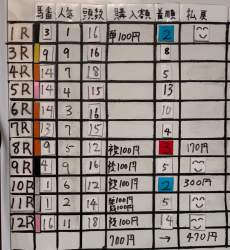 馬番 人気 頭数 購入額 着順 払戻
1R 3 1 16 単100円 2
3R 9 9 16 8
4R 14 7 18 5
5R 14 3 16 10
7R 13 7 15 4
8R 9 5 12 複100円 3 170円
9R 4 9 16 複100円 5
10R 1 6 12 複100円 2 300円
11R 1 2 14 100円 5
12R 16 11 18 複100円 14
700円 → 470円